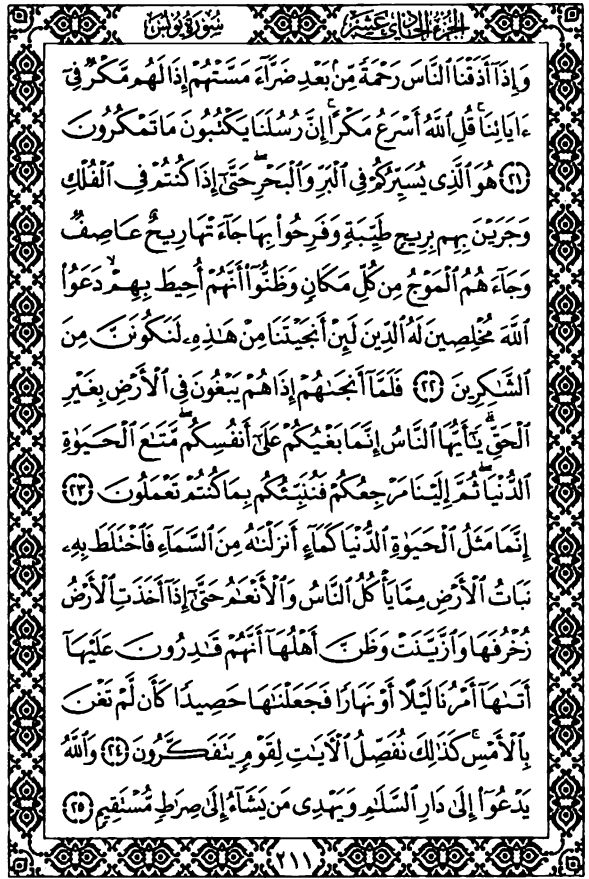 سورة يونس الجزء الحادي عشر
وَإِذَآ أَذَقْنَا ٱلنَّاسَ رَحْمَةً مِّنۢ بَعْدِ ضَرَّآءَ مَسَّتْهُمْ إِذَا لَهُم مَّكْرٌ فِىٓ
ءَايَاتِنَا ۚ قُلِ ٱللَّهُ أَسْرَعُ مَكْرًا ۚ إِنَّ رُسُلَنَا يَكْتُبُونَ مَا تَمْكُرُونَ
﴿٢١﴾ هُوَ ٱلَّذِى يُسَيِّرُكُمْ فِى ٱلْبَرِّ وَٱلْبَحْرِ ۖ حَتَّىٰٓ إِذَا كُنتُمْ فِى ٱلْفُلْكِ
وَجَرَيْنَ بِهِم بِرِيحٍ طَيِّبَةٍ وَفَرِحُوا۟ بِهَا جَآءَتْهَا رِيحٌ عَاصِفٌ
وَجَآءَهُمُ ٱلْمَوْجُ مِن كُلِّ مَكَانٍ وَظَنُّوٓا۟ أَنَّهُمْ أُحِيطَ بِهِمْ ۙ دَعَوُا۟
ٱللَّهَ مُخْلِصِينَ لَهُ ٱلدِّينَ لَئِنْ أَنجَيْتَنَا مِنْ هَـٰذِهِۦ لَنَكُونَنَّ مِنَ
ٱلشَّـٰكِرِينَ ﴿٢٢﴾ فَلَمَّآ أَنجَىٰهُمْ إِذَا هُمْ يَبْغُونَ فِى ٱلْأَرْضِ بِغَيْرِ
ٱلْحَقِّ ۗ يَـٰٓأَيُّهَا ٱلنَّاسُ إِنَّمَا بَغْيُكُمْ عَلَىٰٓ أَنفُسِكُم ۖ مَّتَـٰعَ ٱلْحَيَوٰةِ
ٱلدُّنْيَا ۖ ثُمَّ إِلَيْنَا مَرْجِعُكُمْ فَنُنَبِّئُكُم بِمَا كُنتُمْ تَعْمَلُونَ ﴿٢٣﴾
إِنَّمَا مَثَلُ ٱلْحَيَوٰةِ ٱلدُّنْيَا كَمَآءٍ أَنزَلْنَـٰهُ مِنَ ٱلسَّمَآءِ فَٱخْتَلَطَ بِهِۦ
نَبَاتُ ٱلْأَرْضِ مِمَّا يَأْكُلُ ٱلنَّاسُ وَٱلْأَنْعَـٰمُ حَتَّىٰٓ إِذَآ أَخَذَتِ ٱلْأَرْضُ
زُخْرُفَهَا وَٱزَّيَّنَتْ وَظَنَّ أَهْلُهَآ أَنَّهُمْ قَـٰدِرُونَ عَلَيْهَآ
أَتَىٰهَآ أَمْرُنَا لَيْلًا أَوْ نَهَارًا فَجَعَلْنَـٰهَا حَصِيدًا كَأَن لَّمْ تَغْنَ
بِٱلْأَمْسِ ۚ كَذَٰلِكَ نُفَصِّلُ ٱلْـَٔايَـٰتِ لِقَوْمٍ يَتَفَكَّرُونَ ﴿٢٤﴾ وَٱللَّهُ
يَدْعُوٓا۟ إِلَىٰ دَارِ ٱلسَّلَـٰمِ وَيَهْدِى مَن يَشَآءُ إِلَىٰ صِرَٰطٍ مُّسْتَقِيمٍ ﴿٢٥﴾
٢١١